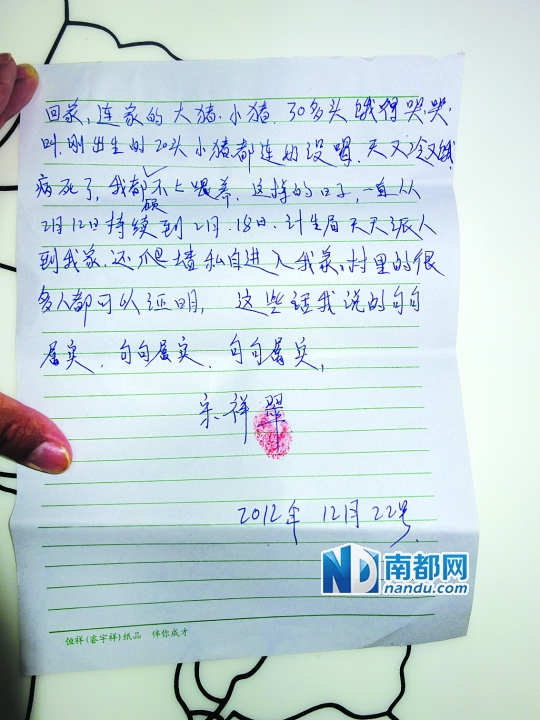 回家，连家的大猪.小猪.30多头饿得哭.哭.
叫.刚出生的20头小猪都连奶没喝.天又冷又饿
病死了，我都顾不上喂养.这样的日子，一直从
2月12日持续到2月.18日.计生局天天派人
到我家.还爬墙私自进入我家，村里的很
多人都可以证明，这些话我说的句句
属实.句句属实.句句属实，
宋祥翠
2012年 12月 22号.
ND南都网
nandu.com
恒祥(睿宇祥)纸品 伴你成才